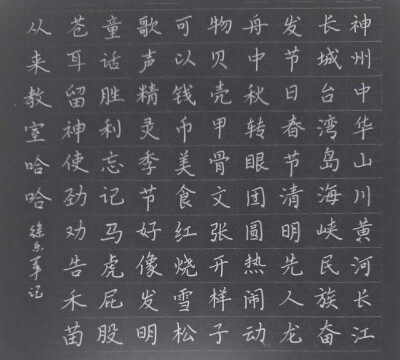 神州中华山川黄河长江
长城台湾岛海峡民族奋
发节日春节清明先人龙
舟中秋转眼团圆热闹动
物贝壳甲骨文张开样子
可以钱币美食红烧雪松
歌声精灵季节好像发明
童话胜利忘记马虎屁股
苍耳留神使劲劝告禾苗
从来教室哈哈
徐乐军记